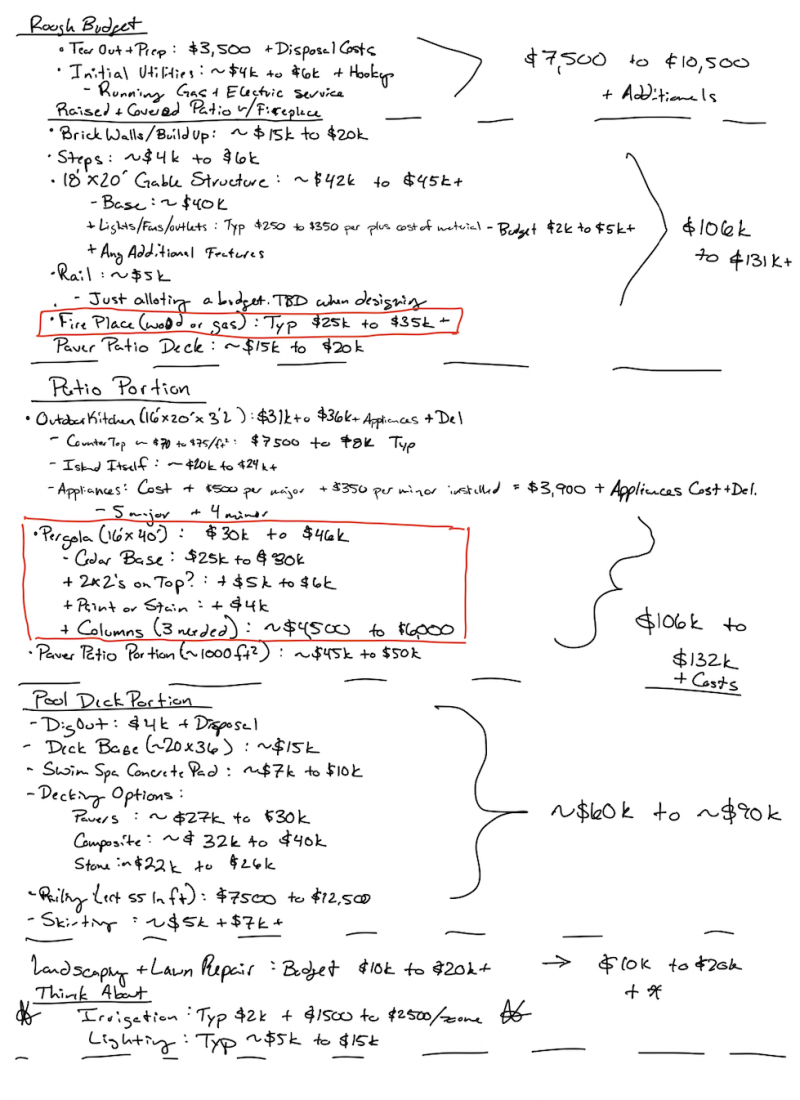 Rough Budget
• Tear Out + Prep : $3,500 + Disposal Costs
• Initial Utilities : ~$4k to $6k + Hookup
- Running Gas + Electric service
$7,500 to $10,500
+ Additionals
Raised + Covered Patio w/ Fireplace
• Brick Walls/Build up : ~ $15k to $20k
• Steps : ~$4k to $6k
• 18'x20' Gable Structure : ~$42k to $45k+
- Base : ~$40k
+ Lights/Fans/outlets : Typ $250 to $350 per plus cost of material - Budget $2k to $5k+
+ Any Additional Features
• Rail : ~$5k
- Just alloting a budget. TBD when designing
• Fire Place (wood or gas) : Typ $25k to $35k +
Paver Patio Deck : ~$15k to $20k
$106k
to $131k+
Patio Portion
• Outdoor Kitchen (16'x20'x3'2") : $31k to $36k + Appliances + Del
- Counter Top ~ $70 to $75/ft² : $7500 to $8k Typ
- Island Itself : ~$20k to $24k+
- Appliances : Cost + $500 per major + $350 per minor installed = $3,900 + Appliances Cost + Del.
- 5 major + 4 minor
• Pergola (16'x40') : $30k to $46k
- Cedar Base : $25k to $30k
+ 2x2's on Top? : + $5k to $6k
+ Paint or Stain : + $4k
+ Columns (3 needed) : ~$4,500 to $6,000
• Paver Patio Portion (~1000 ft²) : ~$45k to $50k
$106k to
$132k
+ Costs
Pool Deck Portion
- Dig Out : $4k + Disposal
- Deck Base (~20x36) : ~$15k
- Swim Spa Concrete Pad : ~$7k to $10k
- Decking Options :
Pavers : ~ $27k to $30k
Composite : ~$ 32k to $40k
Stone : ~$22k to $26k
- Railing (est 55 ln ft) : $7500 to $12,500
- Skirting : ~$5k + $7k +
~$60k to ~$90k
Landscaping + Lawn Repair : Budget $10k to $20k+ → $10k to $20k
+ *
Think About
Irrigation : Typ $2k + $1500 to $2500/zone
Lighting : Typ ~$5k to $15k